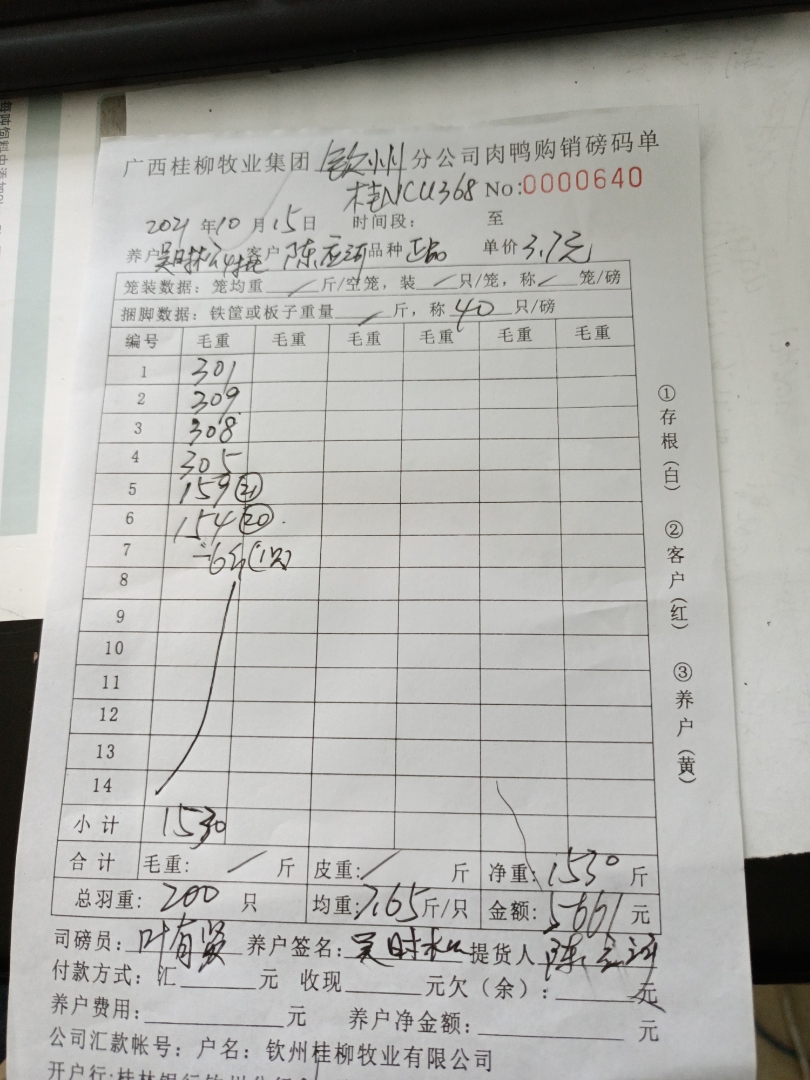 广西桂柳牧业集团 钦州 分公司肉鸭购销磅码单
桂NCU368 No:0000640
2021 年 10 月 15 日 时间段: 至
养户 吴时 客户 陈应河 品种 正品 单价 3.7元
笼装数据:笼均重 / 斤/空笼,装 / 只/笼,称 / 笼/磅
捆脚数据:铁筐或板子重量 / 斤,称 40 只/磅
编号 毛重 毛重 毛重 毛重 毛重 毛重
1 301
2 309
3 308
4 305
5 159 (21)
6 154 (20)
7 -6斤(1只)
8
9
10
11
12
13
14
小计 1530
合计 毛重: / 斤 皮重: / 斤 净重: 1530 斤
总羽重: 200 只 均重: 7.65 斤/只 金额: 5661 元
司磅员: 叶有贤 养户签名: 吴时 提货人 陈应河
付款方式:汇 元 收现 元欠(余): 元
养户费用: 元 养户净金额: 元
公司汇款帐号:户名:钦州桂柳牧业有限公司
开户行:桂林银行钦州分行
①存根(白) ②客户(红) ③养户(黄)